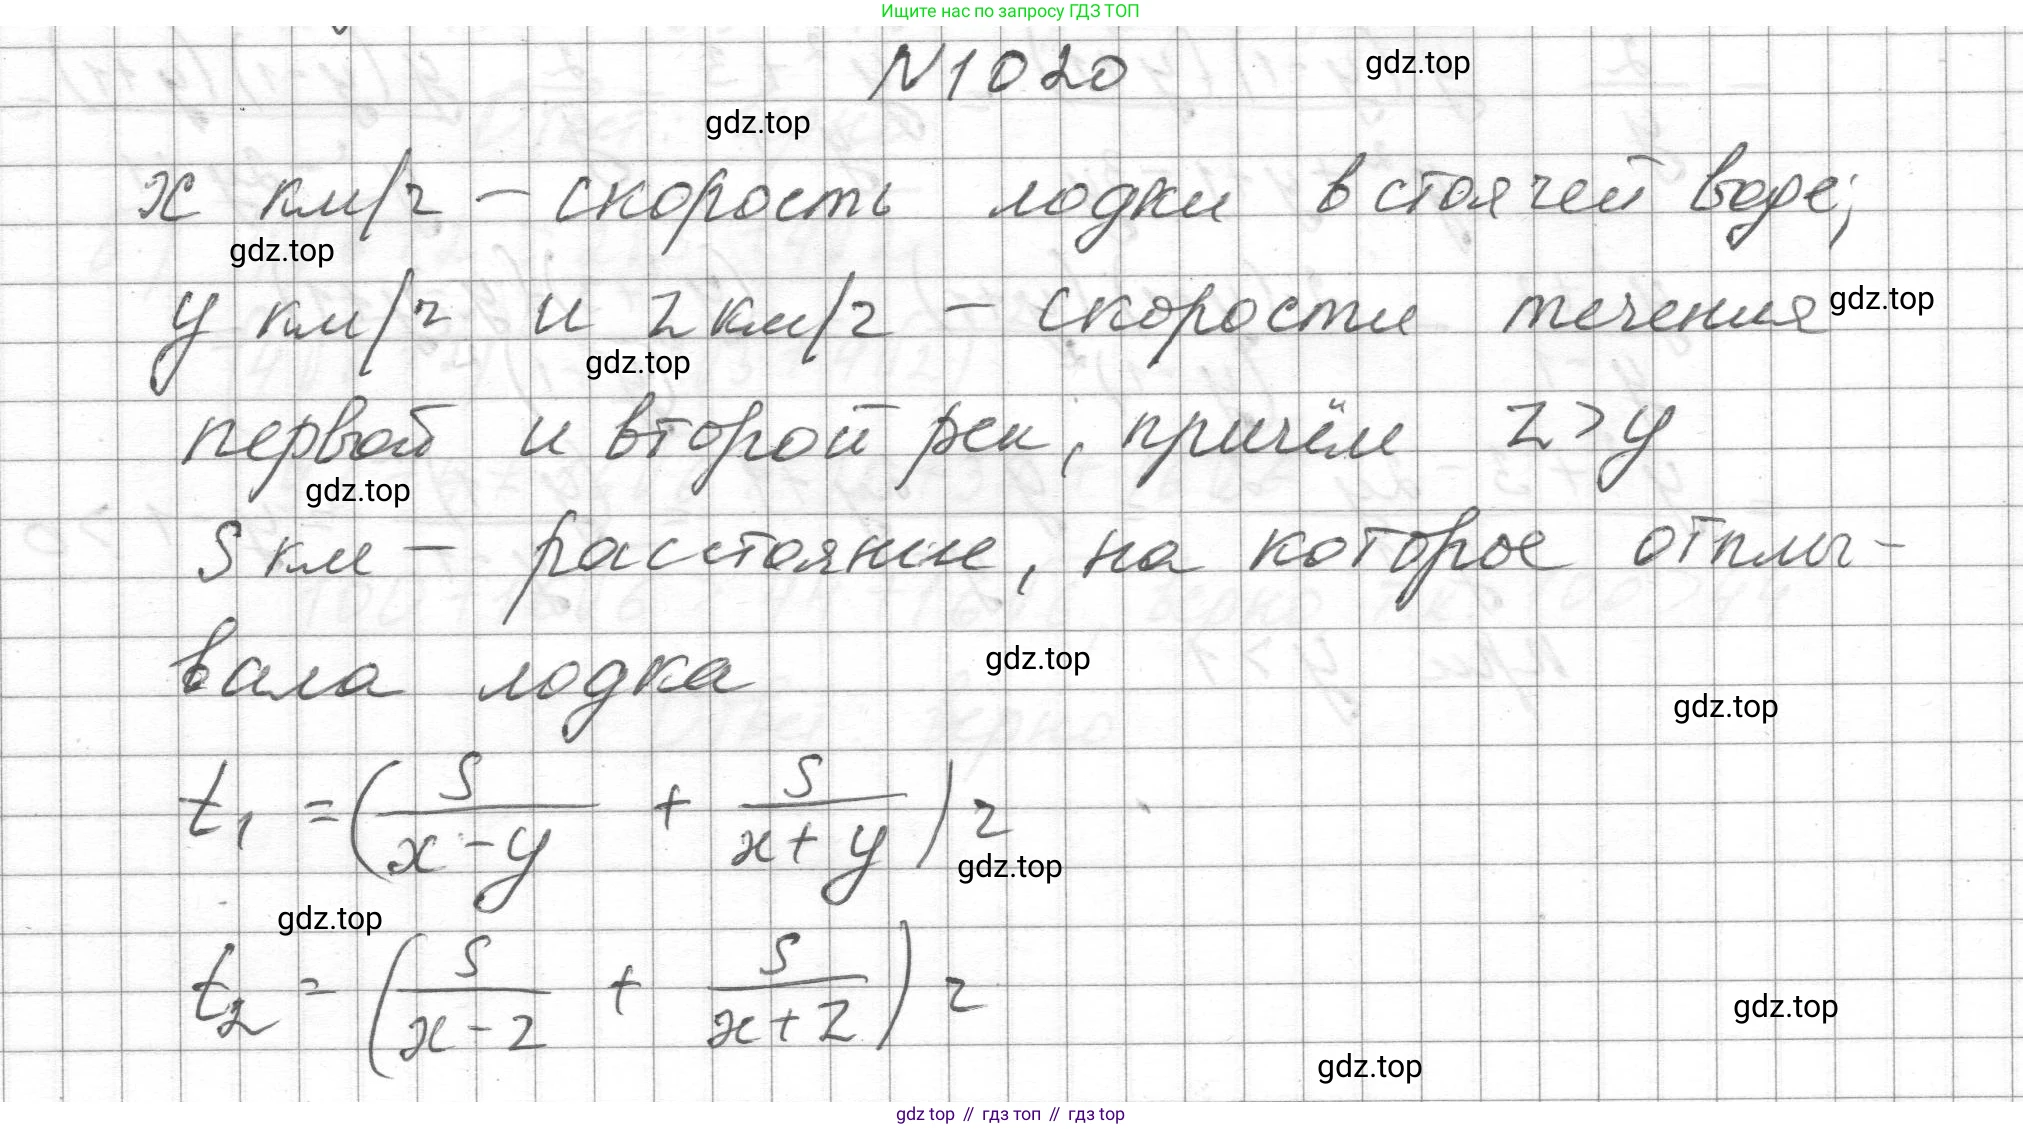 Ищите нас по запросу ГДЗ ТОП
N1020
gdz.top
gdz.top
x км/ч – скорость лодки в стоячей воде;
gdz.top
y км/ч и z км/ч – скорости течения
gdz.top
gdz.top
первой и второй рек, причём z > y
gdz.top
S км – расстояние, на которое отплы-
вала лодка
gdz.top
gdz.top
t₁ = (S/(x-y) + S/(x+y)) ч
gdz.top
gdz.top
t₂ = (S/(x-z) + S/(x+z)) ч
gdz.top
gdz.top
gdz top // гдз топ // гдз top